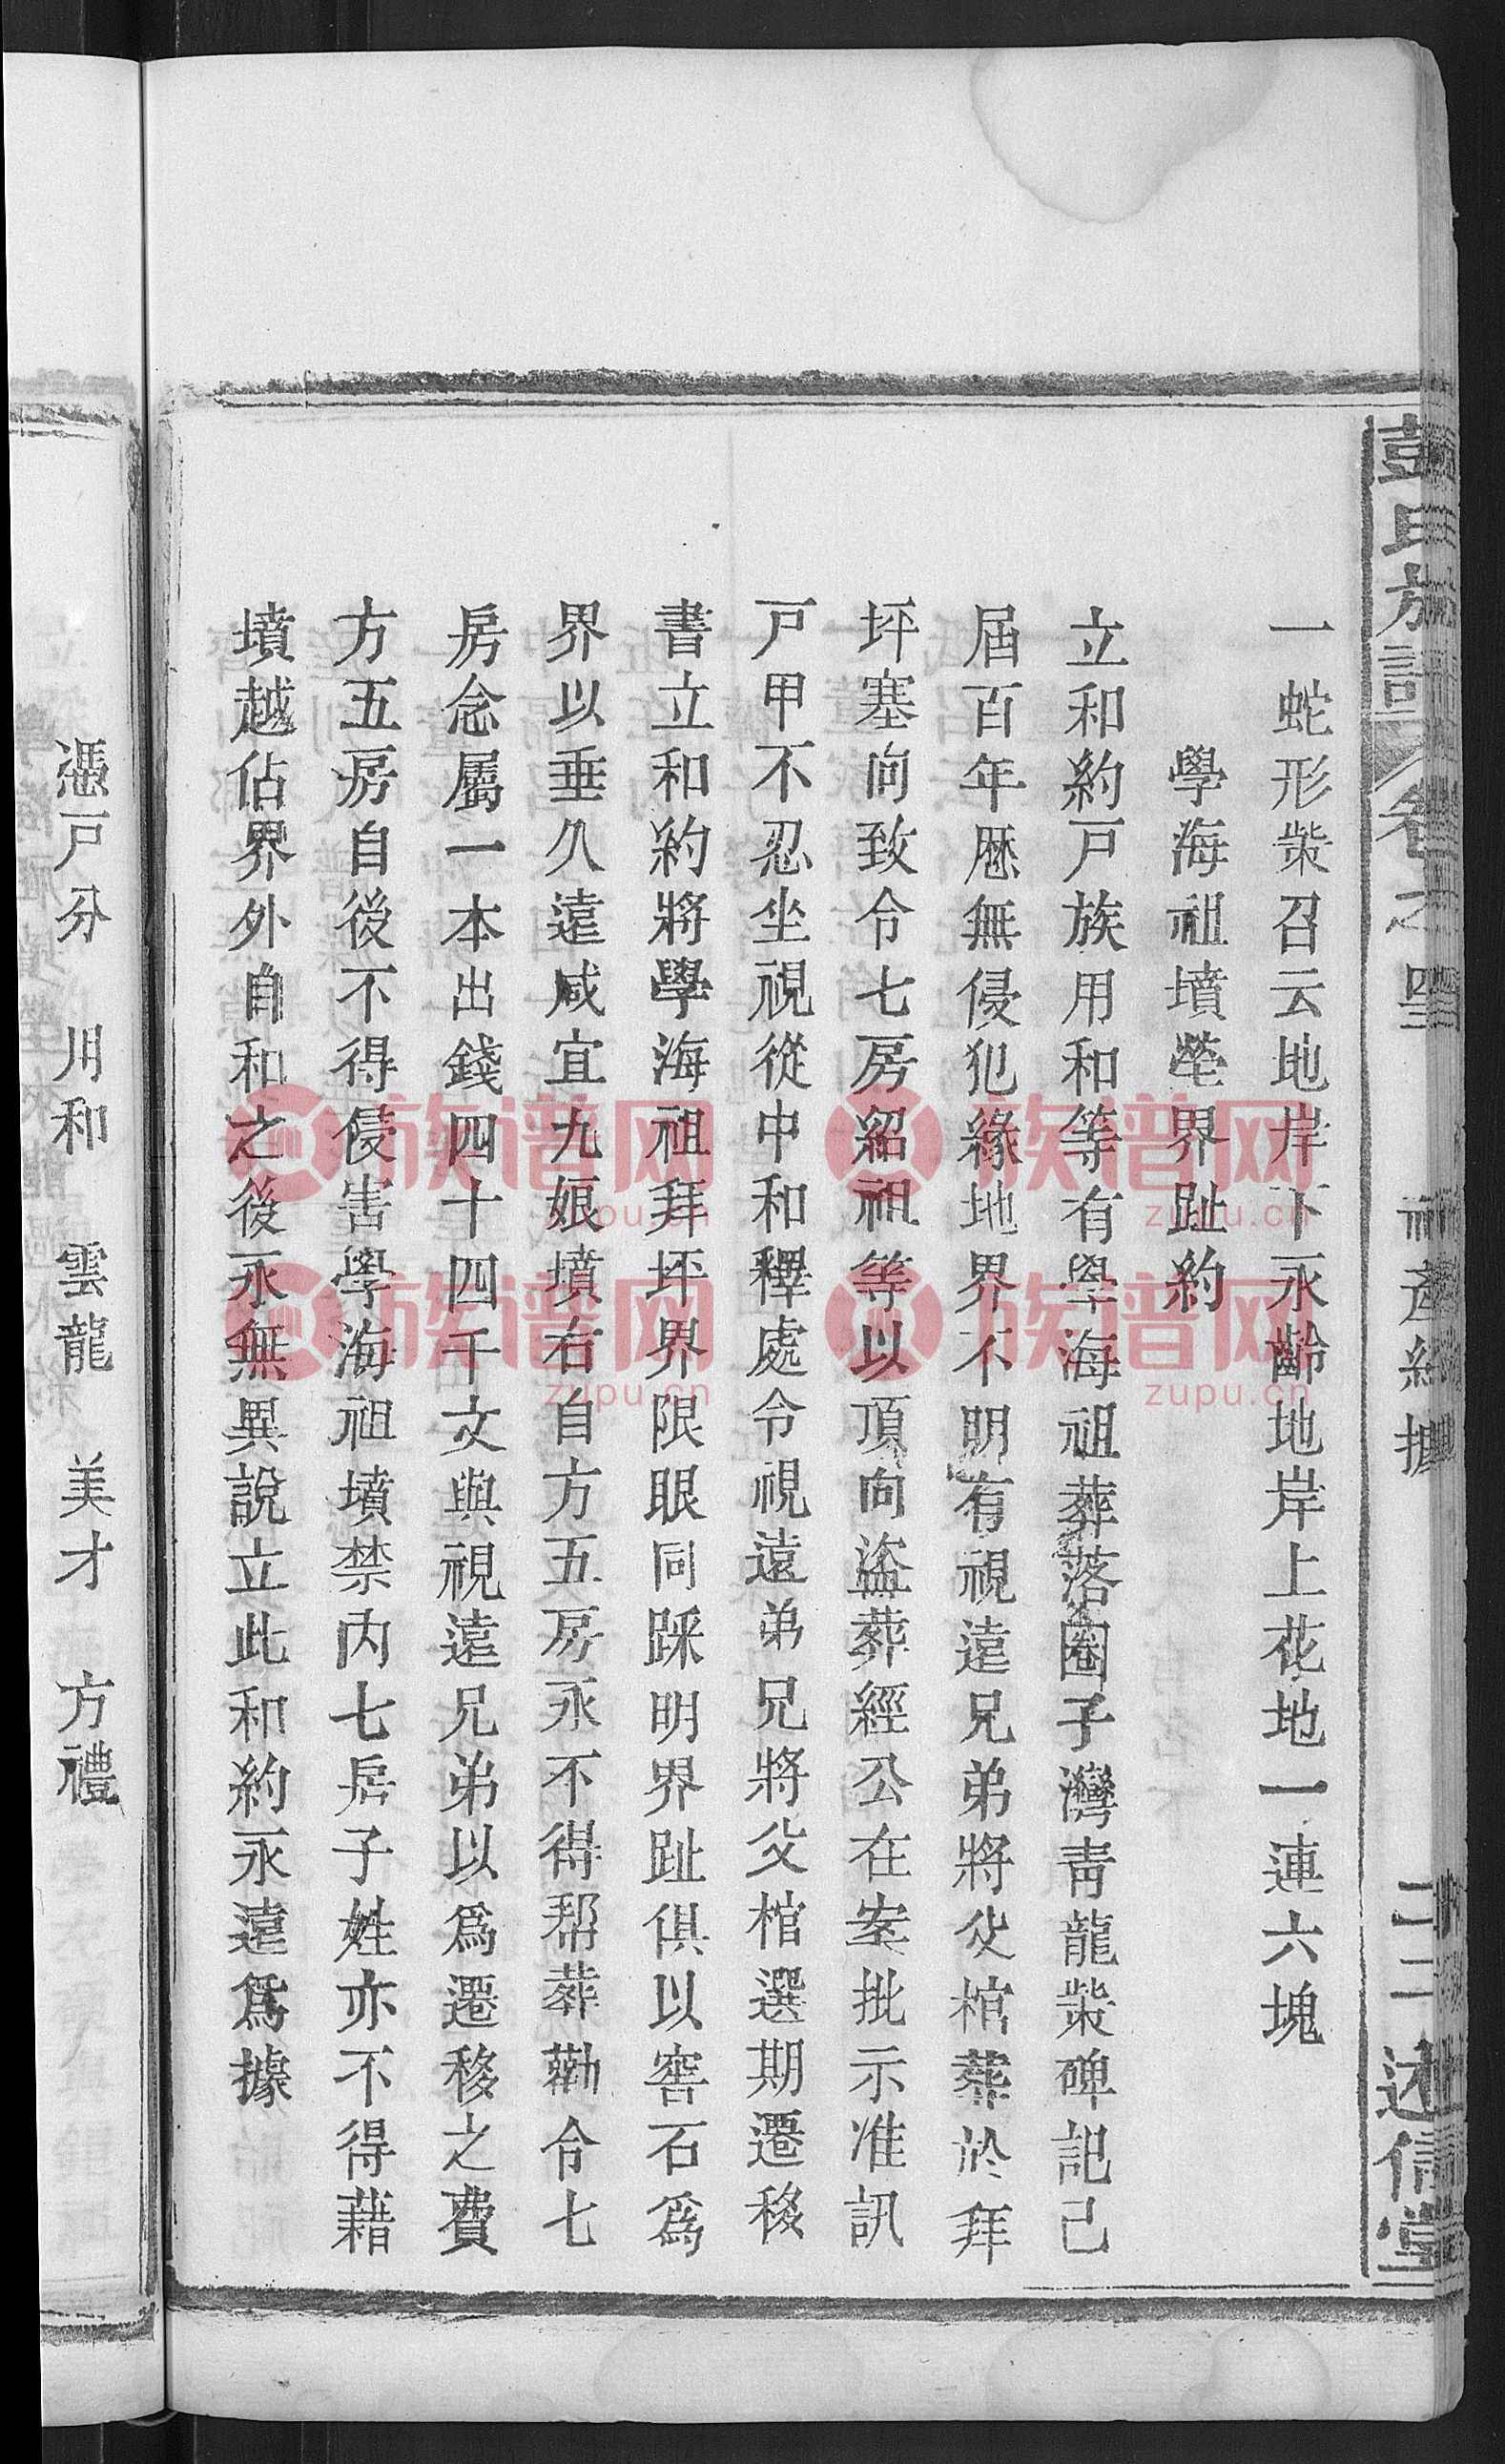 彭氏族譜 卷之四 祠產紙據 二二 述信堂
一蛇形柴召云地岸下永齡地岸上花地一連六塊
學海祖墳塋界趾約
立和約戸族用和等有學海祖葬落圈子灣靑龍柴碑記己
屆百年厯無侵犯緣地界不明有視遠兄弟將父棺葬於拜
坪塞向致令七房紹祖等以頂向盜葬經公在案批示准訊
戸甲不忍坐視從中和釋處令視遠弟兄將父棺選期遷移
書立和約將學海祖拜坪界限眼同踩明界趾俱以窖石爲
界以垂久遠咸宜九娘墳右自方五房永不得帮葬勸令七
房念屬一本出錢四十四千文與視遠兄弟以爲遷移之費
方五房自後不得侵害學海祖墳禁內七房子姓亦不得藉
墳越佔界外自和之後永無異說立此和約永遠爲據
憑戸分 川和 雲龍 美才 方禮
族谱网
zupu.cn
族谱网
zupu.cn
族谱网
zupu.cn
族谱网
zupu.cn